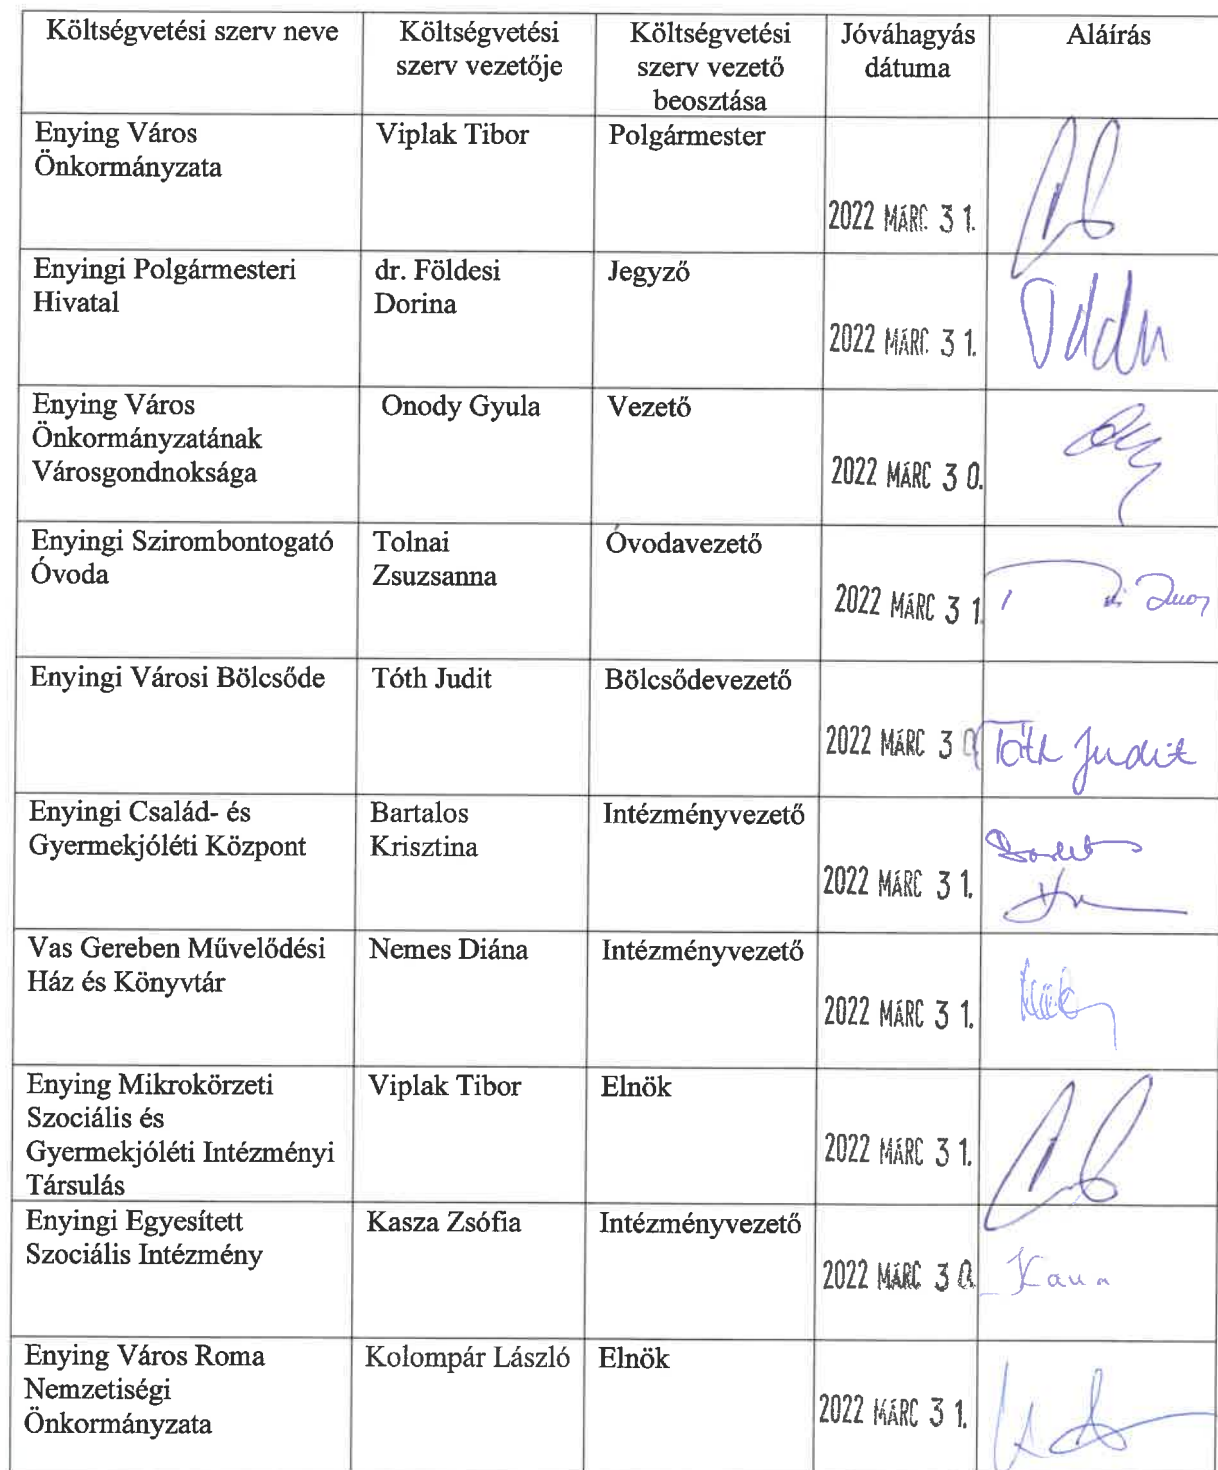 Költségvetési szerv neve
Költségvetési
szerv vezetője
Költségvetési
szerv vezető
beosztása
Jóváhagyás
dátuma
Aláírás
Enying Város
Önkormányzata
Viplak Tibor
Polgármester
2022 MÁRC. 3 1.
Enyingi Polgármesteri
Hivatal
dr. Földesi
Dorina
Jegyző
2022 MÁRC. 3 1.
Enying Város
Önkormányzatának
Városgondnoksága
Onody Gyula
Vezető
2022 MÁRC 3 0.
Enyingi Szirombontogató
Óvoda
Tolnai
Zsuzsanna
Óvodavezető
2022 MÁRC 3 1
Enyingi Városi Bölcsőde
Tóth Judit
Bölcsődevezető
2022 MÁRC 3 0
Tóth Judit
Enyingi Család- és
Gyermekjóléti Központ
Bartalos
Krisztina
Intézményvezető
2022 MÁRC 3 1.
Vas Gereben Művelődési
Ház és Könyvtár
Nemes Diána
Intézményvezető
2022 MÁRC 3 1.
Enying Mikrokörzeti
Szociális és
Gyermekjóléti Intézményi
Társulás
Viplak Tibor
Elnök
2022 MÁRC 3 1.
Enyingi Egyesített
Szociális Intézmény
Kasza Zsófia
Intézményvezető
2022 MÁRC 3 0.
Enying Város Roma
Nemzetiségi
Önkormányzata
Kolompár László
Elnök
2022 MÁRC 3 1.